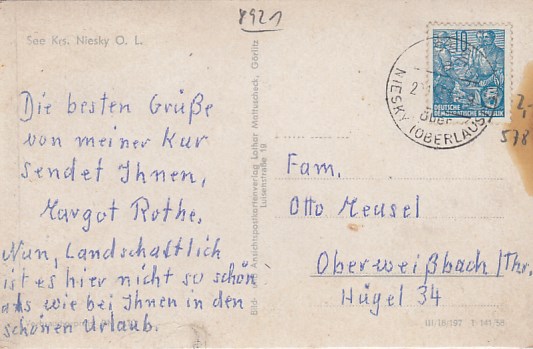 8921
See Krs. Niesky O. L.
Die besten Grüße
von meiner Kur
sendet Ihnen,
Margot Rothe,
Nun, Landschaftlich
ist es hier nicht so schön
als wie bei Ihnen in den
schönen Urlaub.
Bild- und Ansichtspostkartenverlag Lothar Mattuscheck, Görlitz
Luisenstraße 19
10
DEUTSCHE
DEMOKRATISCHE REPUBLIK
NIESKY (OBERLAUS
über
2,-
578
Fam.
Otto Meusel
Oberweißbach/Thr.
Hügel 34
III/18/197 1-141/58